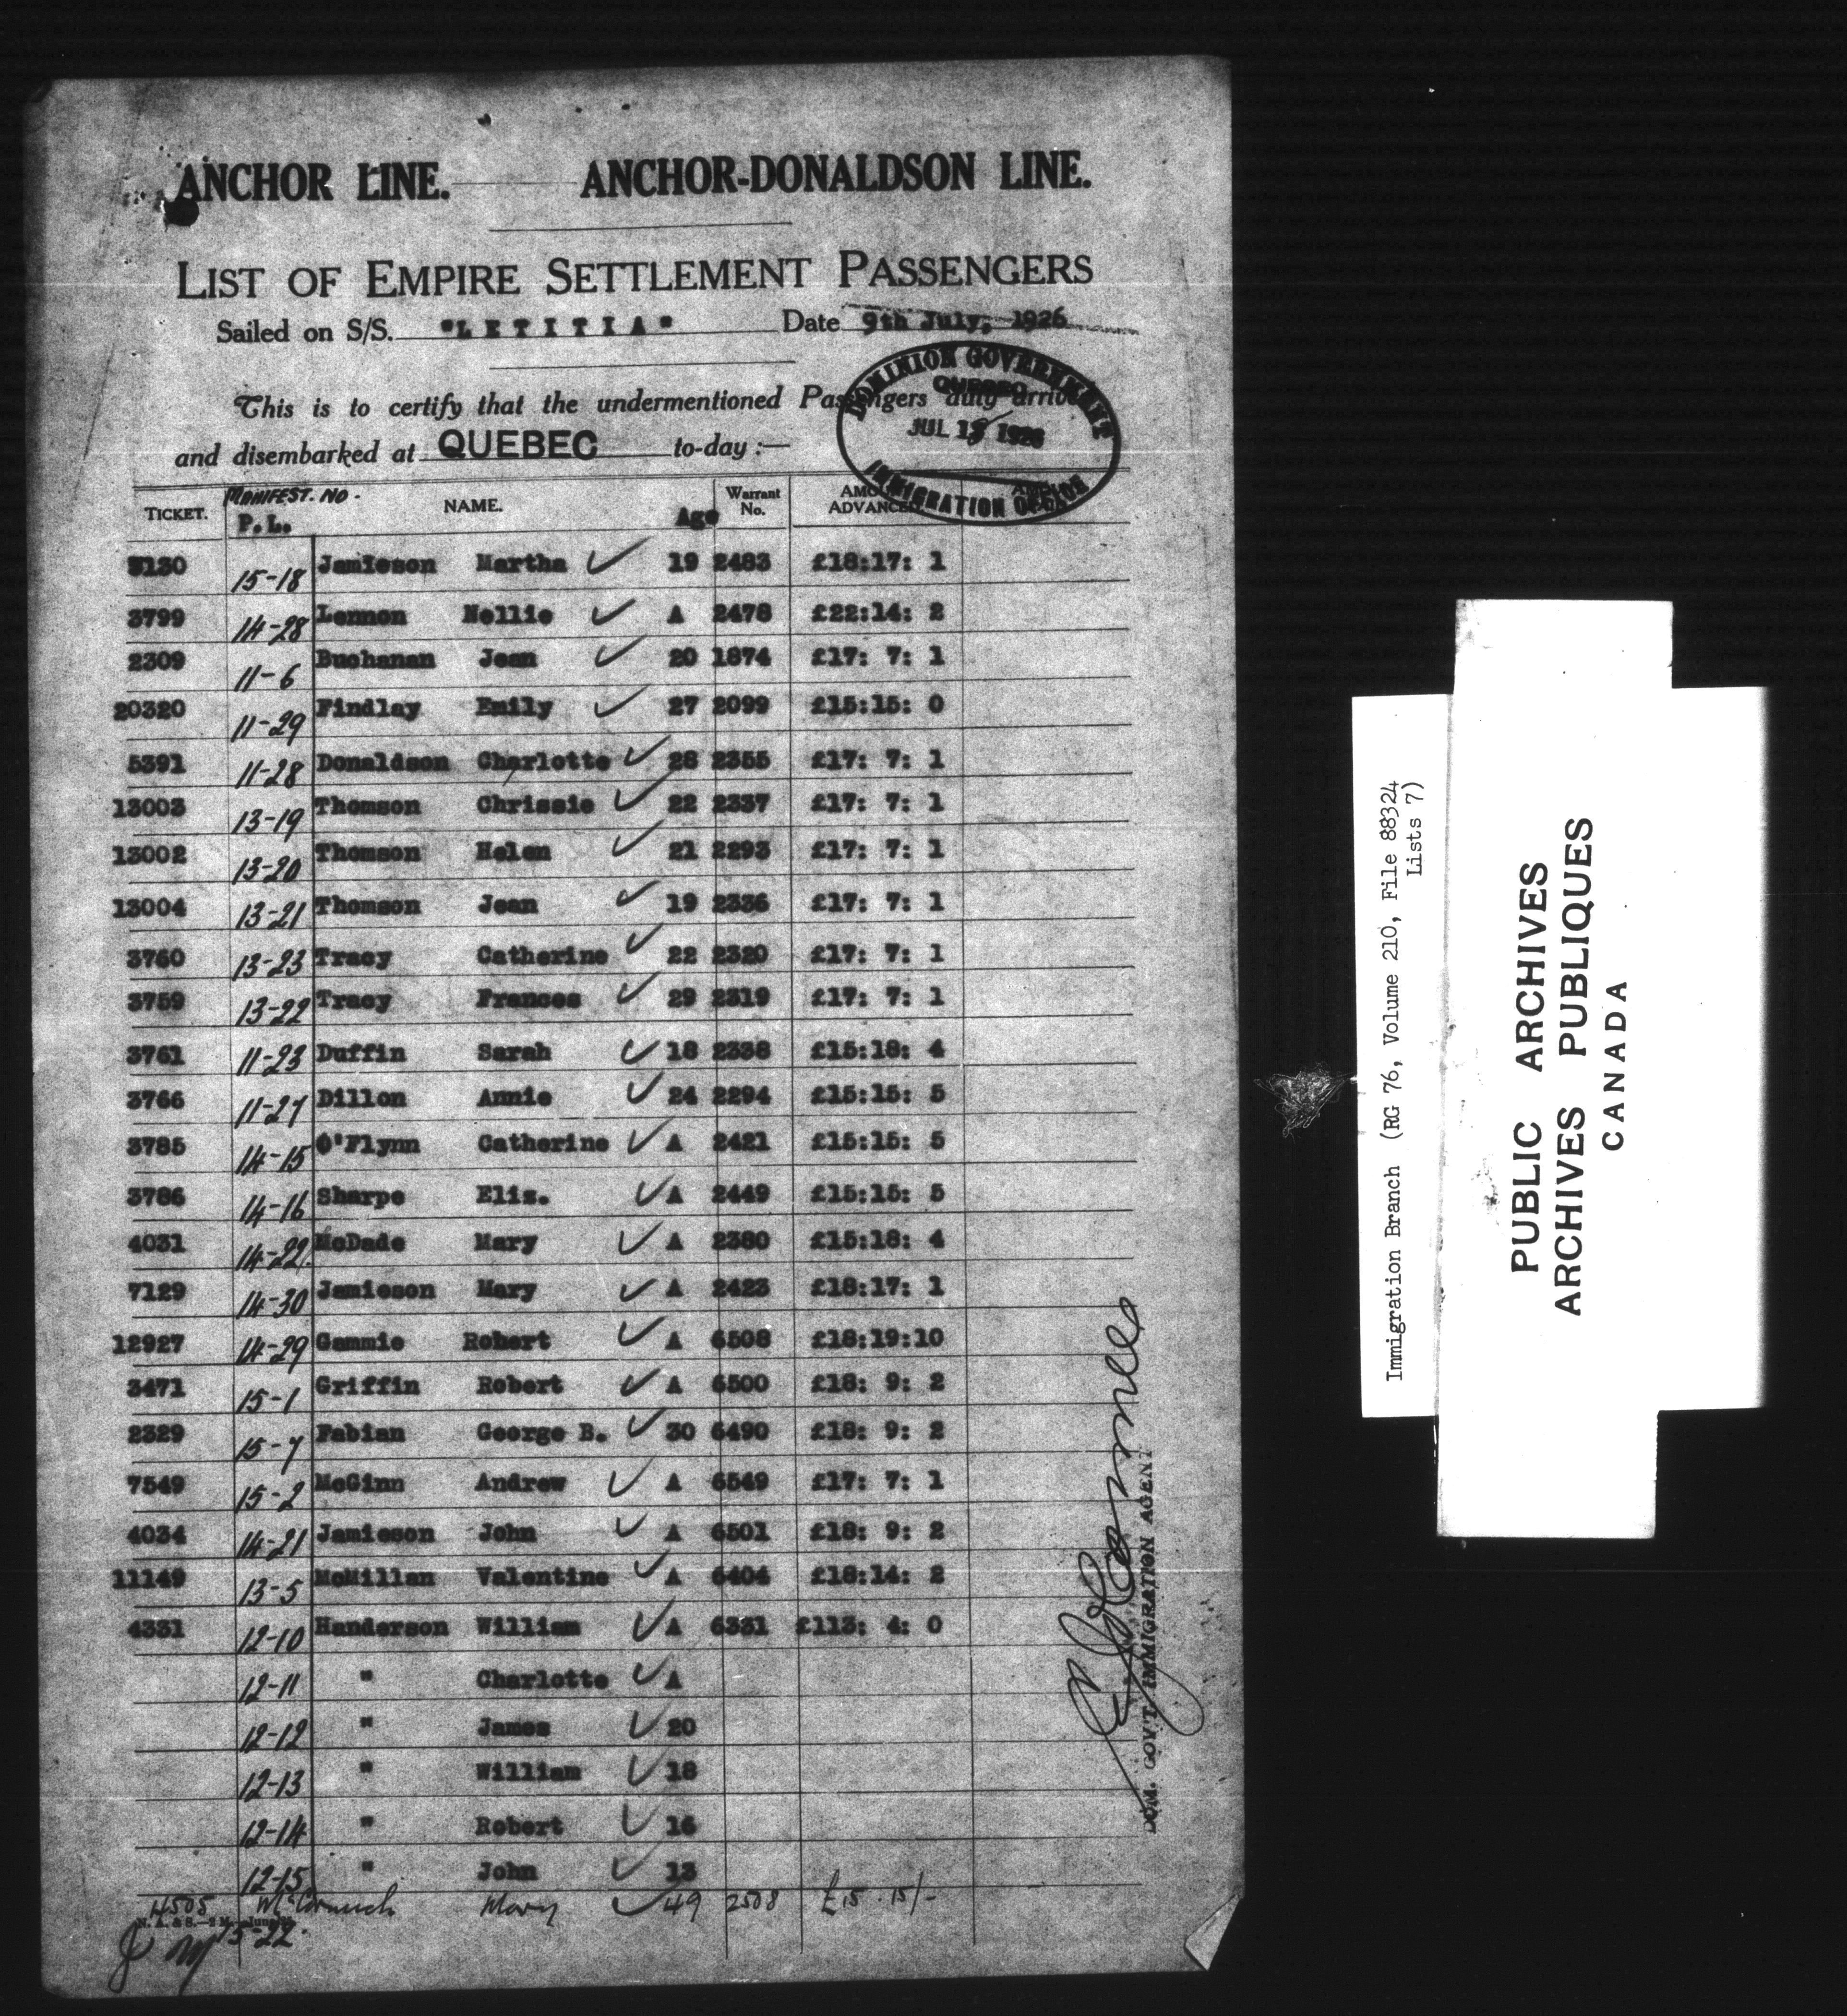 ANCHOR LINE. ANCHOR-DONALDSON LINE.
LIST OF EMPIRE SETTLEMENT PASSENGERS
Sailed on S/S. "LETITIA" Date 9th July, 1926
This is to certify that the undermentioned Passengers duly arrived
and disembarked at QUEBEC to-day :—
DOMINION GOVERNMENT
QUEBEC
JUL 1 1926
IMMIGRATION OFFICE
TICKET. MANIFEST. NO. P.L. NAME. Age Warrant No. AMOUNT ADVANCED
9130 15-18 Jamieson Martha ✓ 19 2483 £18:17: 1
3799 14-28 Lennon Nellie ✓ A 2478 £22:14: 2
2309 11-6 Buchanan Jean ✓ 20 1874 £17: 7: 1
20320 11-29 Findlay Emily ✓ 27 2099 £15:15: 0
5391 11-28 Donaldson Charlotte ✓ 28 2355 £17: 7: 1
13003 13-19 Thomson Chrissie ✓ 22 2337 £17: 7: 1
13002 13-20 Thomson Helen ✓ 21 2293 £17: 7: 1
13004 13-21 Thomson Jean ✓ 19 2336 £17: 7: 1
3760 13-23 Tracy Catherine ✓ 22 2320 £17: 7: 1
3759 13-22 Tracy Frances ✓ 29 2319 £17: 7: 1
3761 11-23 Duffin Sarah ✓ 18 2338 £15:18: 4
3766 11-27 Dillon Annie ✓ 24 2294 £15:15: 5
3785 14-15 O'Flynn Catherine ✓ A 2421 £15:15: 5
3786 14-16 Sharpe Eliz. ✓ A 2449 £15:15: 5
4031 14-22 McDade Mary ✓ A 2380 £15:18: 4
7129 14-30 Jamieson Mary ✓ A 2423 £18:17: 1
12927 14-29 Gammie Robert ✓ A 6508 £18:19:10
3471 15-1 Griffin Robert ✓ A 6500 £18: 9: 2
2329 15-7 Fabian George B. ✓ 30 6490 £18: 9: 2
7549 15-2 McGinn Andrew ✓ A 6549 £17: 7: 1
4034 14-21 Jamieson John ✓ A 6501 £18: 9: 2
11149 13-5 McMillan Valentine ✓ A 6404 £18:14: 2
4331 12-10 Handerson William ✓ A 6331 £113: 4: 0
12-11 " Charlotte ✓ A
12-12 " James ✓ 20
12-13 " William ✓ 18
12-14 " Robert ✓ 16
12-15 " John ✓ 13
4505 McCormick Mary ✓ 49 2508 £15 . 15/-
15-22.
DOM. GOV'T. IMMIGRATION AGENT
Immigration Branch (RG 76, Volume 210, File 88324
Lists 7)
PUBLIC ARCHIVES
ARCHIVES PUBLIQUES
CANADA